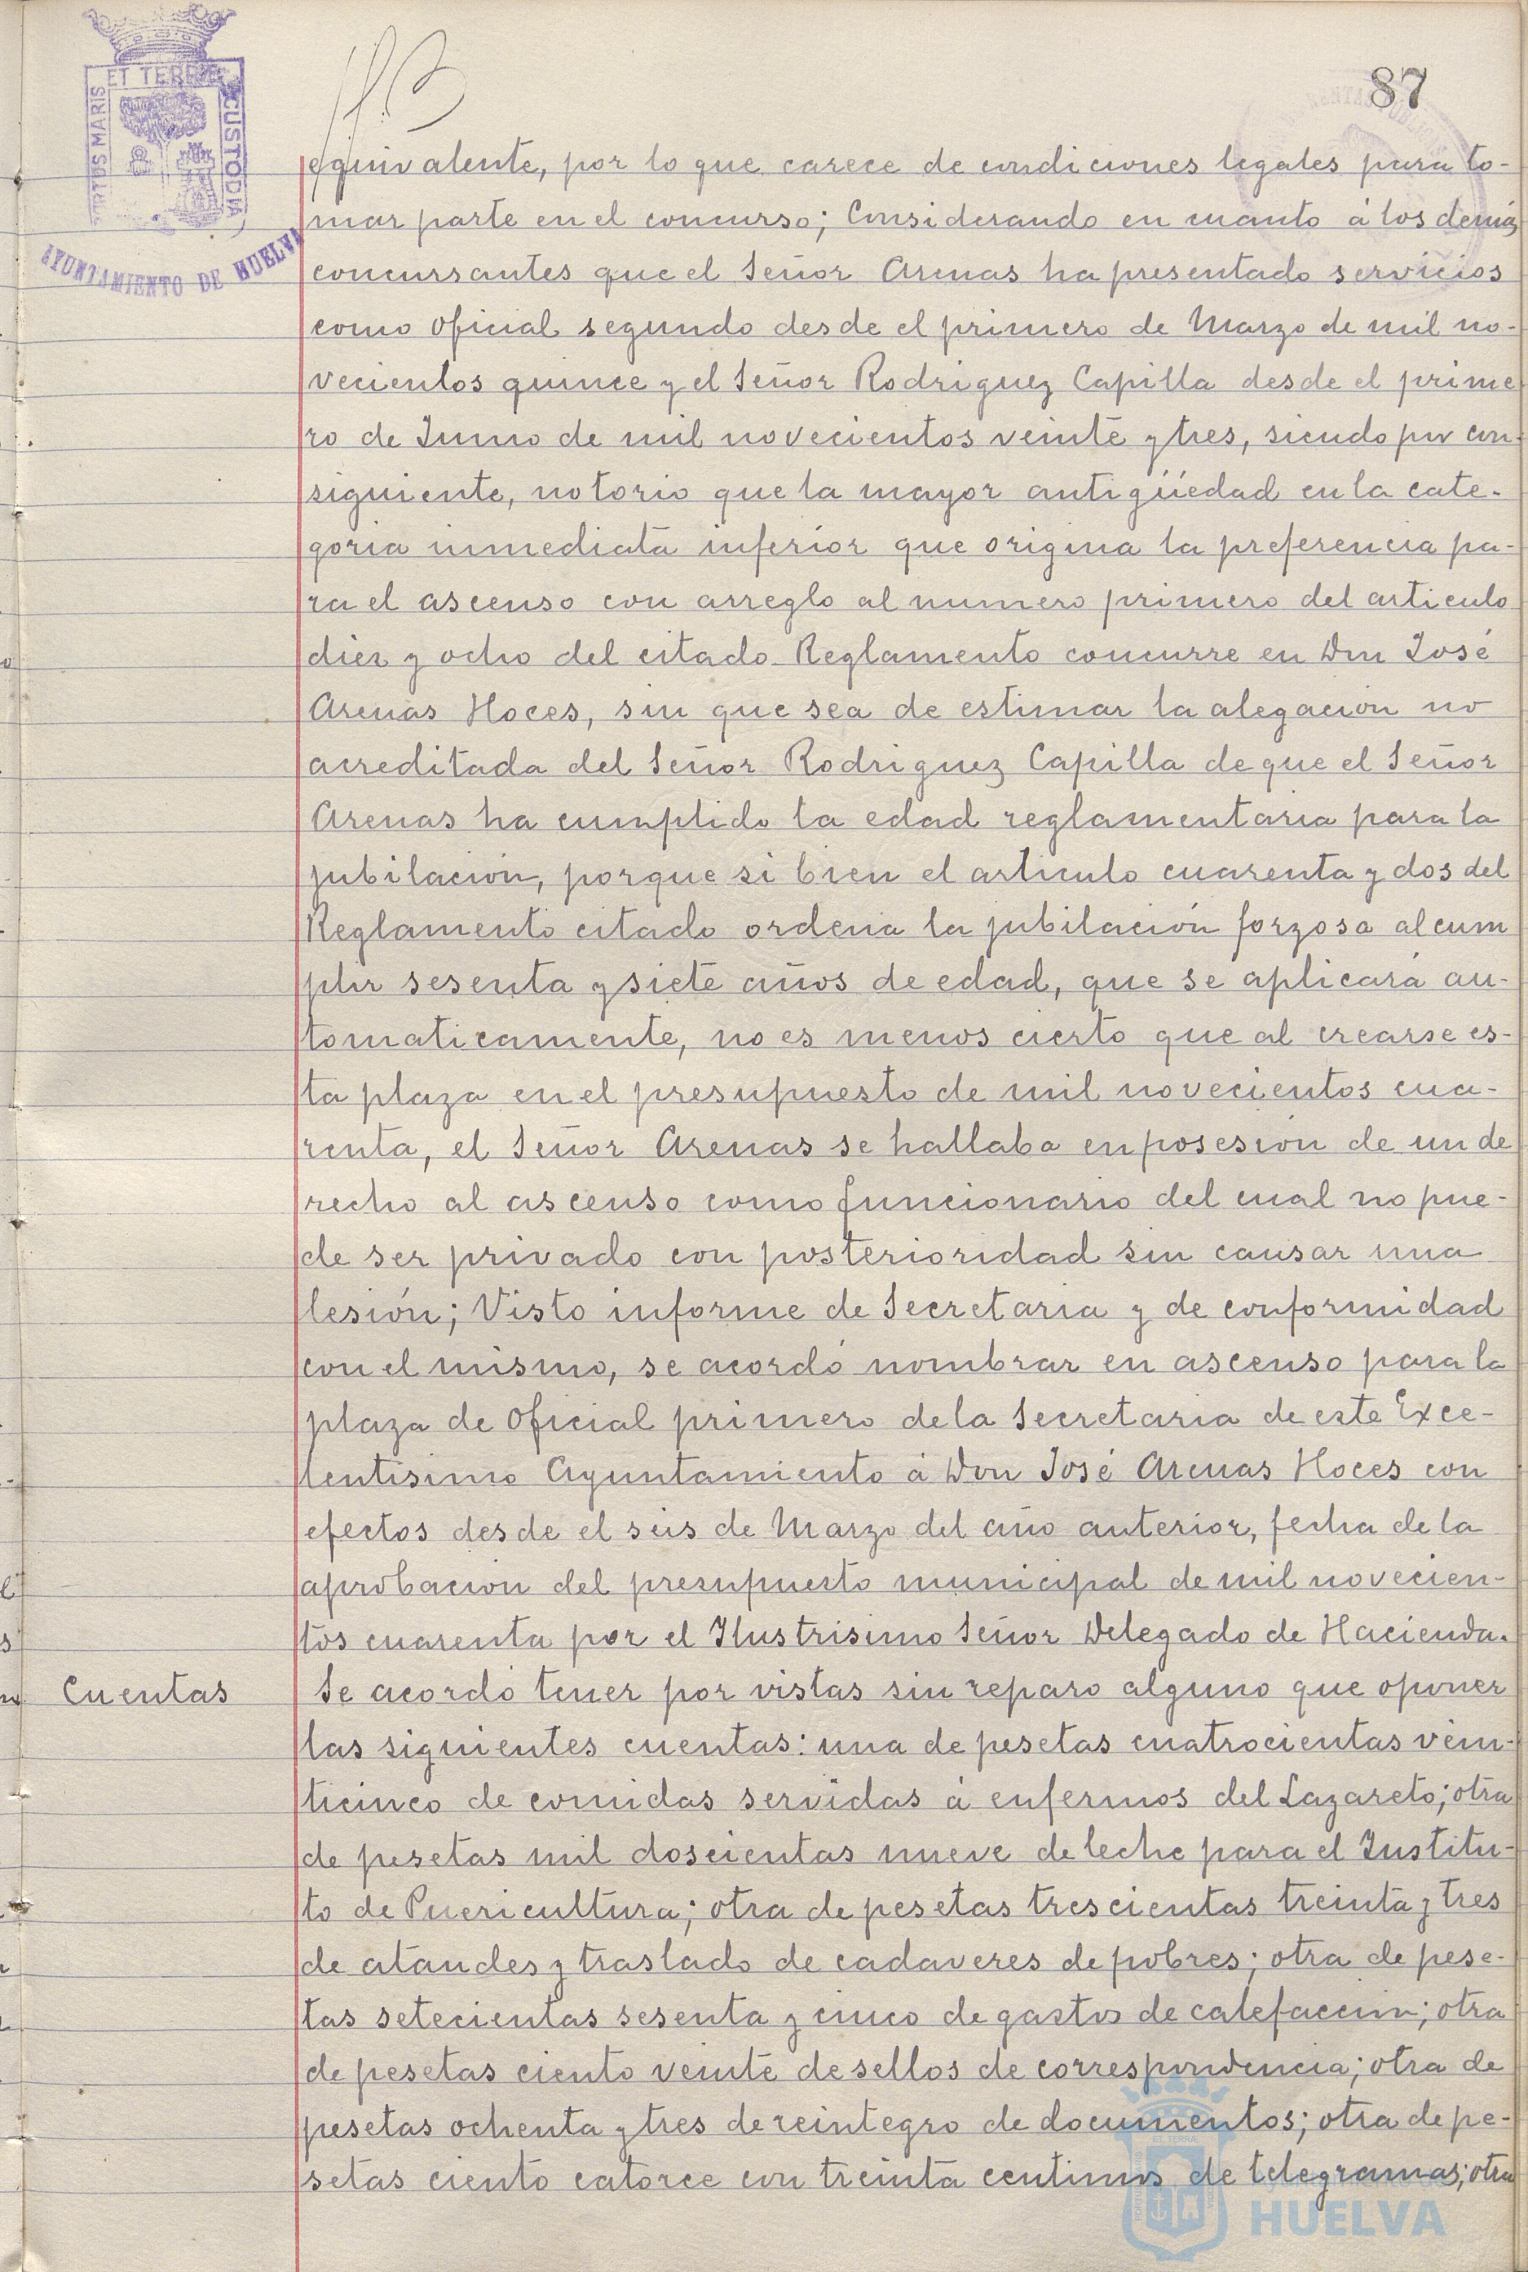 87
PORTUS MARIS ET TERRE CUSTODIA
AYUNTAMIENTO DE HUELVA
equivalente, por lo que carece de condiciones legales para to-
mar parte en el concurso; Considerando en cuanto á los demás
concursantes que el Señor Arenas ha presentado servicios
como oficial segundo desde el primero de Marzo de mil no-
vecientos quince y el Señor Rodriguez Capilla desde el prime
ro de Junio de mil novecientos veinte y tres, siendo por con-
siguiente, notorio que la mayor antigüedad en la cate-
goria inmediata inferior que origina la preferencia pa-
ra el ascenso con arreglo al numero primero del articulo
diez y ocho del citado Reglamento concurre en Don José
Arenas Hoces, sin que sea de estimar la alegación no
acreditada del Señor Rodriguez Capilla de que el Señor
Arenas ha cumplido la edad reglamentaria para la
jubilación, porque si bien el articulo cuarenta y dos del
Reglamento citado ordena la jubilación forzosa al cum
plir sesenta y siete años de edad, que se aplicará au-
tomaticamente, no es menos cierto que al crearse es-
ta plaza en el presupuesto de mil novecientos cua-
renta, el Señor Arenas se hallaba en posesión de un de
recho al ascenso como funcionario del cual no pue-
de ser privado con posterioridad sin causar una
lesión; Visto informe de Secretaria y de conformidad
con el mismo, se acordó nombrar en ascenso para la
plaza de oficial primero de la Secretaria de este Exce-
lentisimo Ayuntamiento á Don José Arenas Hoces con
efectos desde el seis de Marzo del año anterior, fecha de la
aprobación del presupuesto municipal de mil novecien-
tos cuarenta por el Ilustrisimo Señor Delegado de Hacienda.
Cuentas Se acordó tener por vistas sin reparo alguno que oponer
las siguientes cuentas: una de pesetas cuatrocientas vein-
ticinco de comidas servidas á enfermos del Lazareto; otra
de pesetas mil doscientas nueve de leche para el Institu-
to de Puericultura; otra de pesetas trescientas treinta y tres
de ataudes y traslado de cadaveres de pobres; otra de pese-
tas setecientas sesenta y cinco de gastos de calefacción; otra
de pesetas ciento veinte de sellos de correspondencia; otra de
pesetas ochenta y tres de reintegro de documentos; otra de pe-
setas ciento catorce con treinta centimos de telegramas; otra
HUELVA